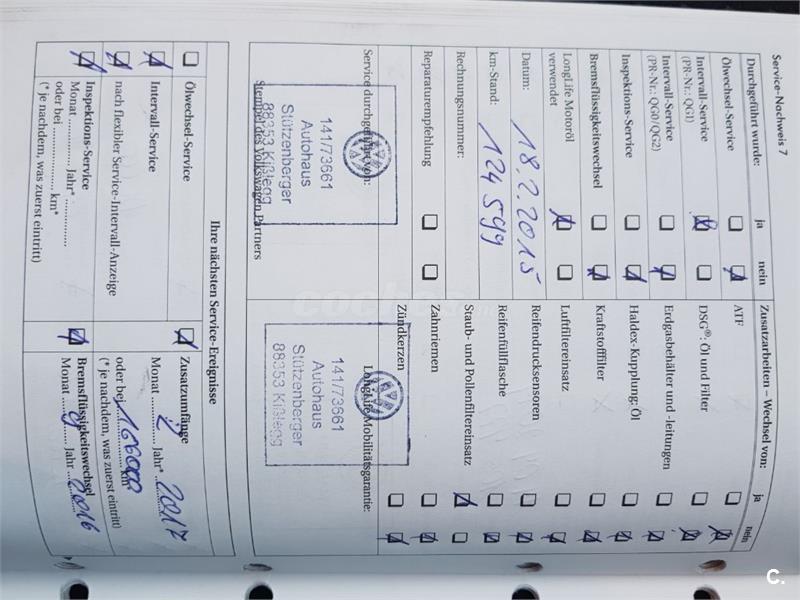 Service-Nachweis 7
Durchgeführt wurde: ja nein
Ölwechsel-Service
Intervall-Service
(PR-Nr.: QG1)
Intervall-Service
(PR-Nr.: QG0/QG2)
Inspektions-Service
Bremsflüssigkeitswechsel
LongLife Motoröl
verwendet
Datum: 18.2.2015
km-Stand: 124599
Rechnungsnummer:
Reparaturempfehlung
Service durchgeführt von:
141/73661
Autohaus
Stützenberger
88353 Kißlegg
Stempel des Volkswagen Partners
Zusatzarbeiten – Wechsel von: ja nein
ATF
DSG®: Öl und Filter
Erdgasbehälter und -leitungen
Haldex-Kupplung: Öl
Kraftstofffilter
Luftfiltereinsatz
Reifendrucksensoren
Reifenfüllflasche
Staub- und Pollenfiltereinsatz
Zahnriemen
Zündkerzen
LongLife Mobilitätsgarantie:
141/73661
Autohaus
Stützenberger
88353 Kißlegg
Ihre nächsten Service-Ereignisse
Ölwechsel-Service
Intervall-Service
nach flexibler Service-Intervall-Anzeige
Inspektions-Service
Monat ............... Jahr* ...............
oder bei ............... km*
(* je nachdem, was zuerst eintritt)
Zusatzumfänge
Monat ............... Jahr* 2017
oder bei 166000 km*
(* je nachdem, was zuerst eintritt)
Bremsflüssigkeitswechsel
Monat ............... Jahr 2016
coches.net
C.